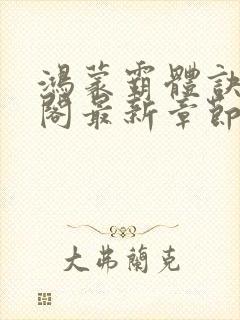 鴻蒙霸體訣
閣最新章節
大弗蘭克